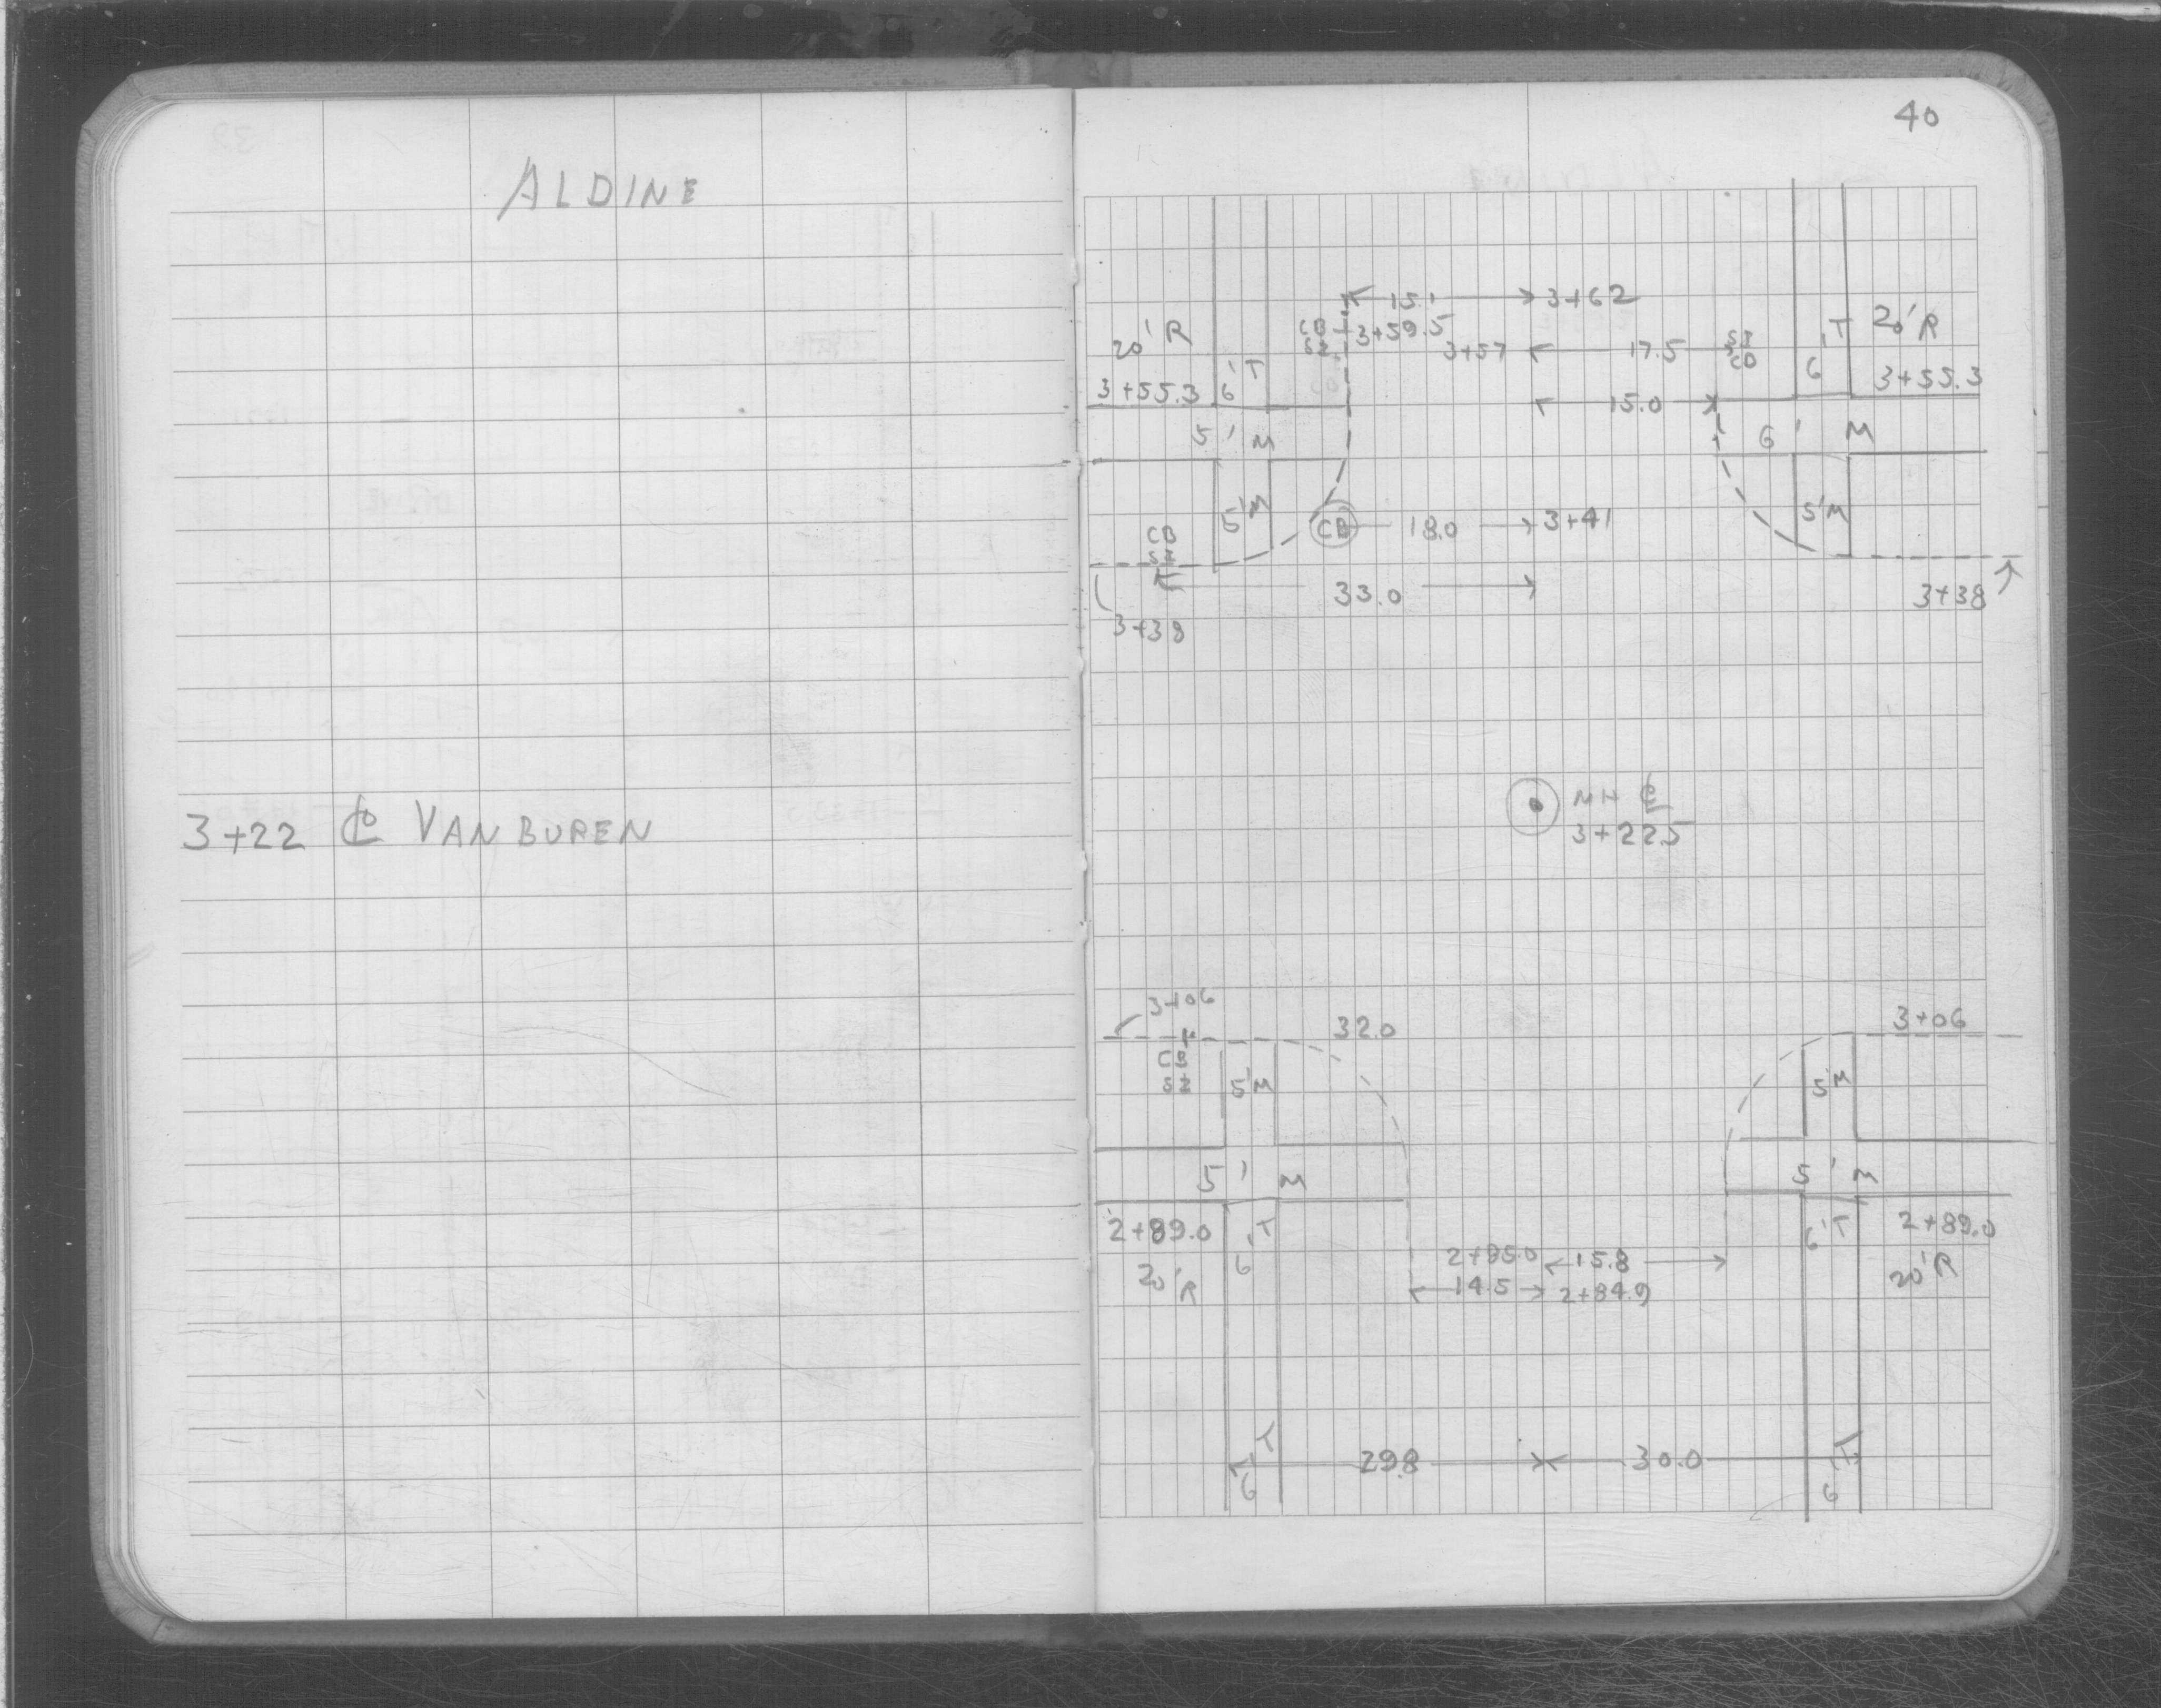 ALDINE
3+22 ℄ VAN BUREN
40
15.1 3+62
CB 3+59.5
SZ
20' R
3+55.3
6' T
3+57 17.5 SZ
CB
6' T
20' R
3+55.3
15.0
5' M
6' M
5'M
CB 18.0 3+41
5'M
CB
SZ
33.0
3+38
3+38
MH ℄
3+22.5
3+06
32.0
3+06
CB
SZ
5'M
5'M
5' M
5' M
2+89.0
20'R
6' T
2+85.0 15.8
14.5 2+84.9
6' T
2+89.0
20'R
6' T
29.8 30.0
6' T